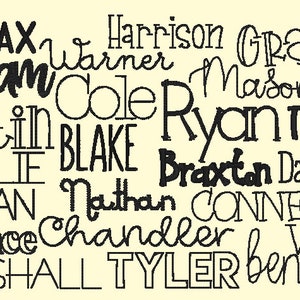 AX Harrison GR
am Warner Mason
in Cole Ryan
BLAKE
IE Braxton Da
AN Nathan CONNE
ce Chandler
SHALL TYLER ben